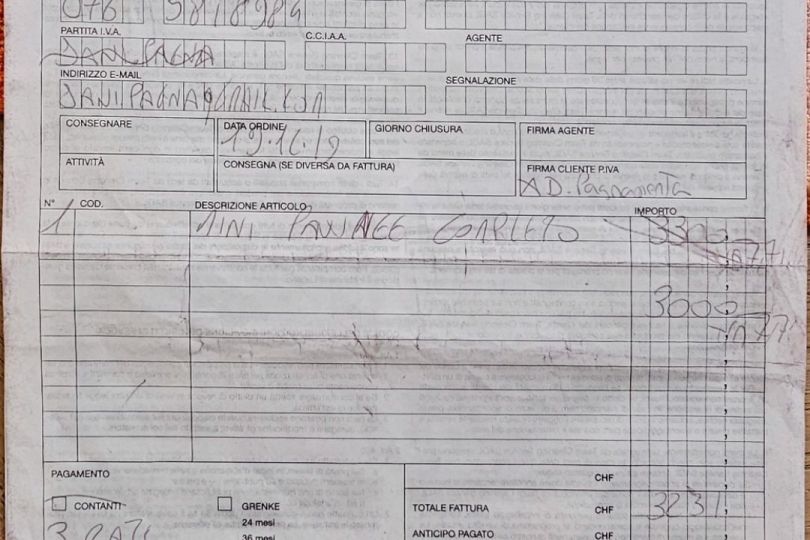 076 5818984
PARTITA I.V.A. C.C.I.A.A. AGENTE
DANI PAGNA
INDIRIZZO E-MAIL SEGNALAZIONE
CONSEGNARE DATA ORDINE GIORNO CHIUSURA FIRMA AGENTE
ATTIVITÀ CONSEGNA (SE DIVERSA DA FATTURA) FIRMA CLIENTE P.IVA
N° COD. DESCRIZIONE ARTICOLO IMPORTO
1 MINI COMPLETO 3300,
3000,
PAGAMENTO
CHF
CONTANTI GRENKE TOTALE FATTURA CHF 3231,
24 mesi
3 RATE 36 mesi ANTICIPO PAGATO CHF